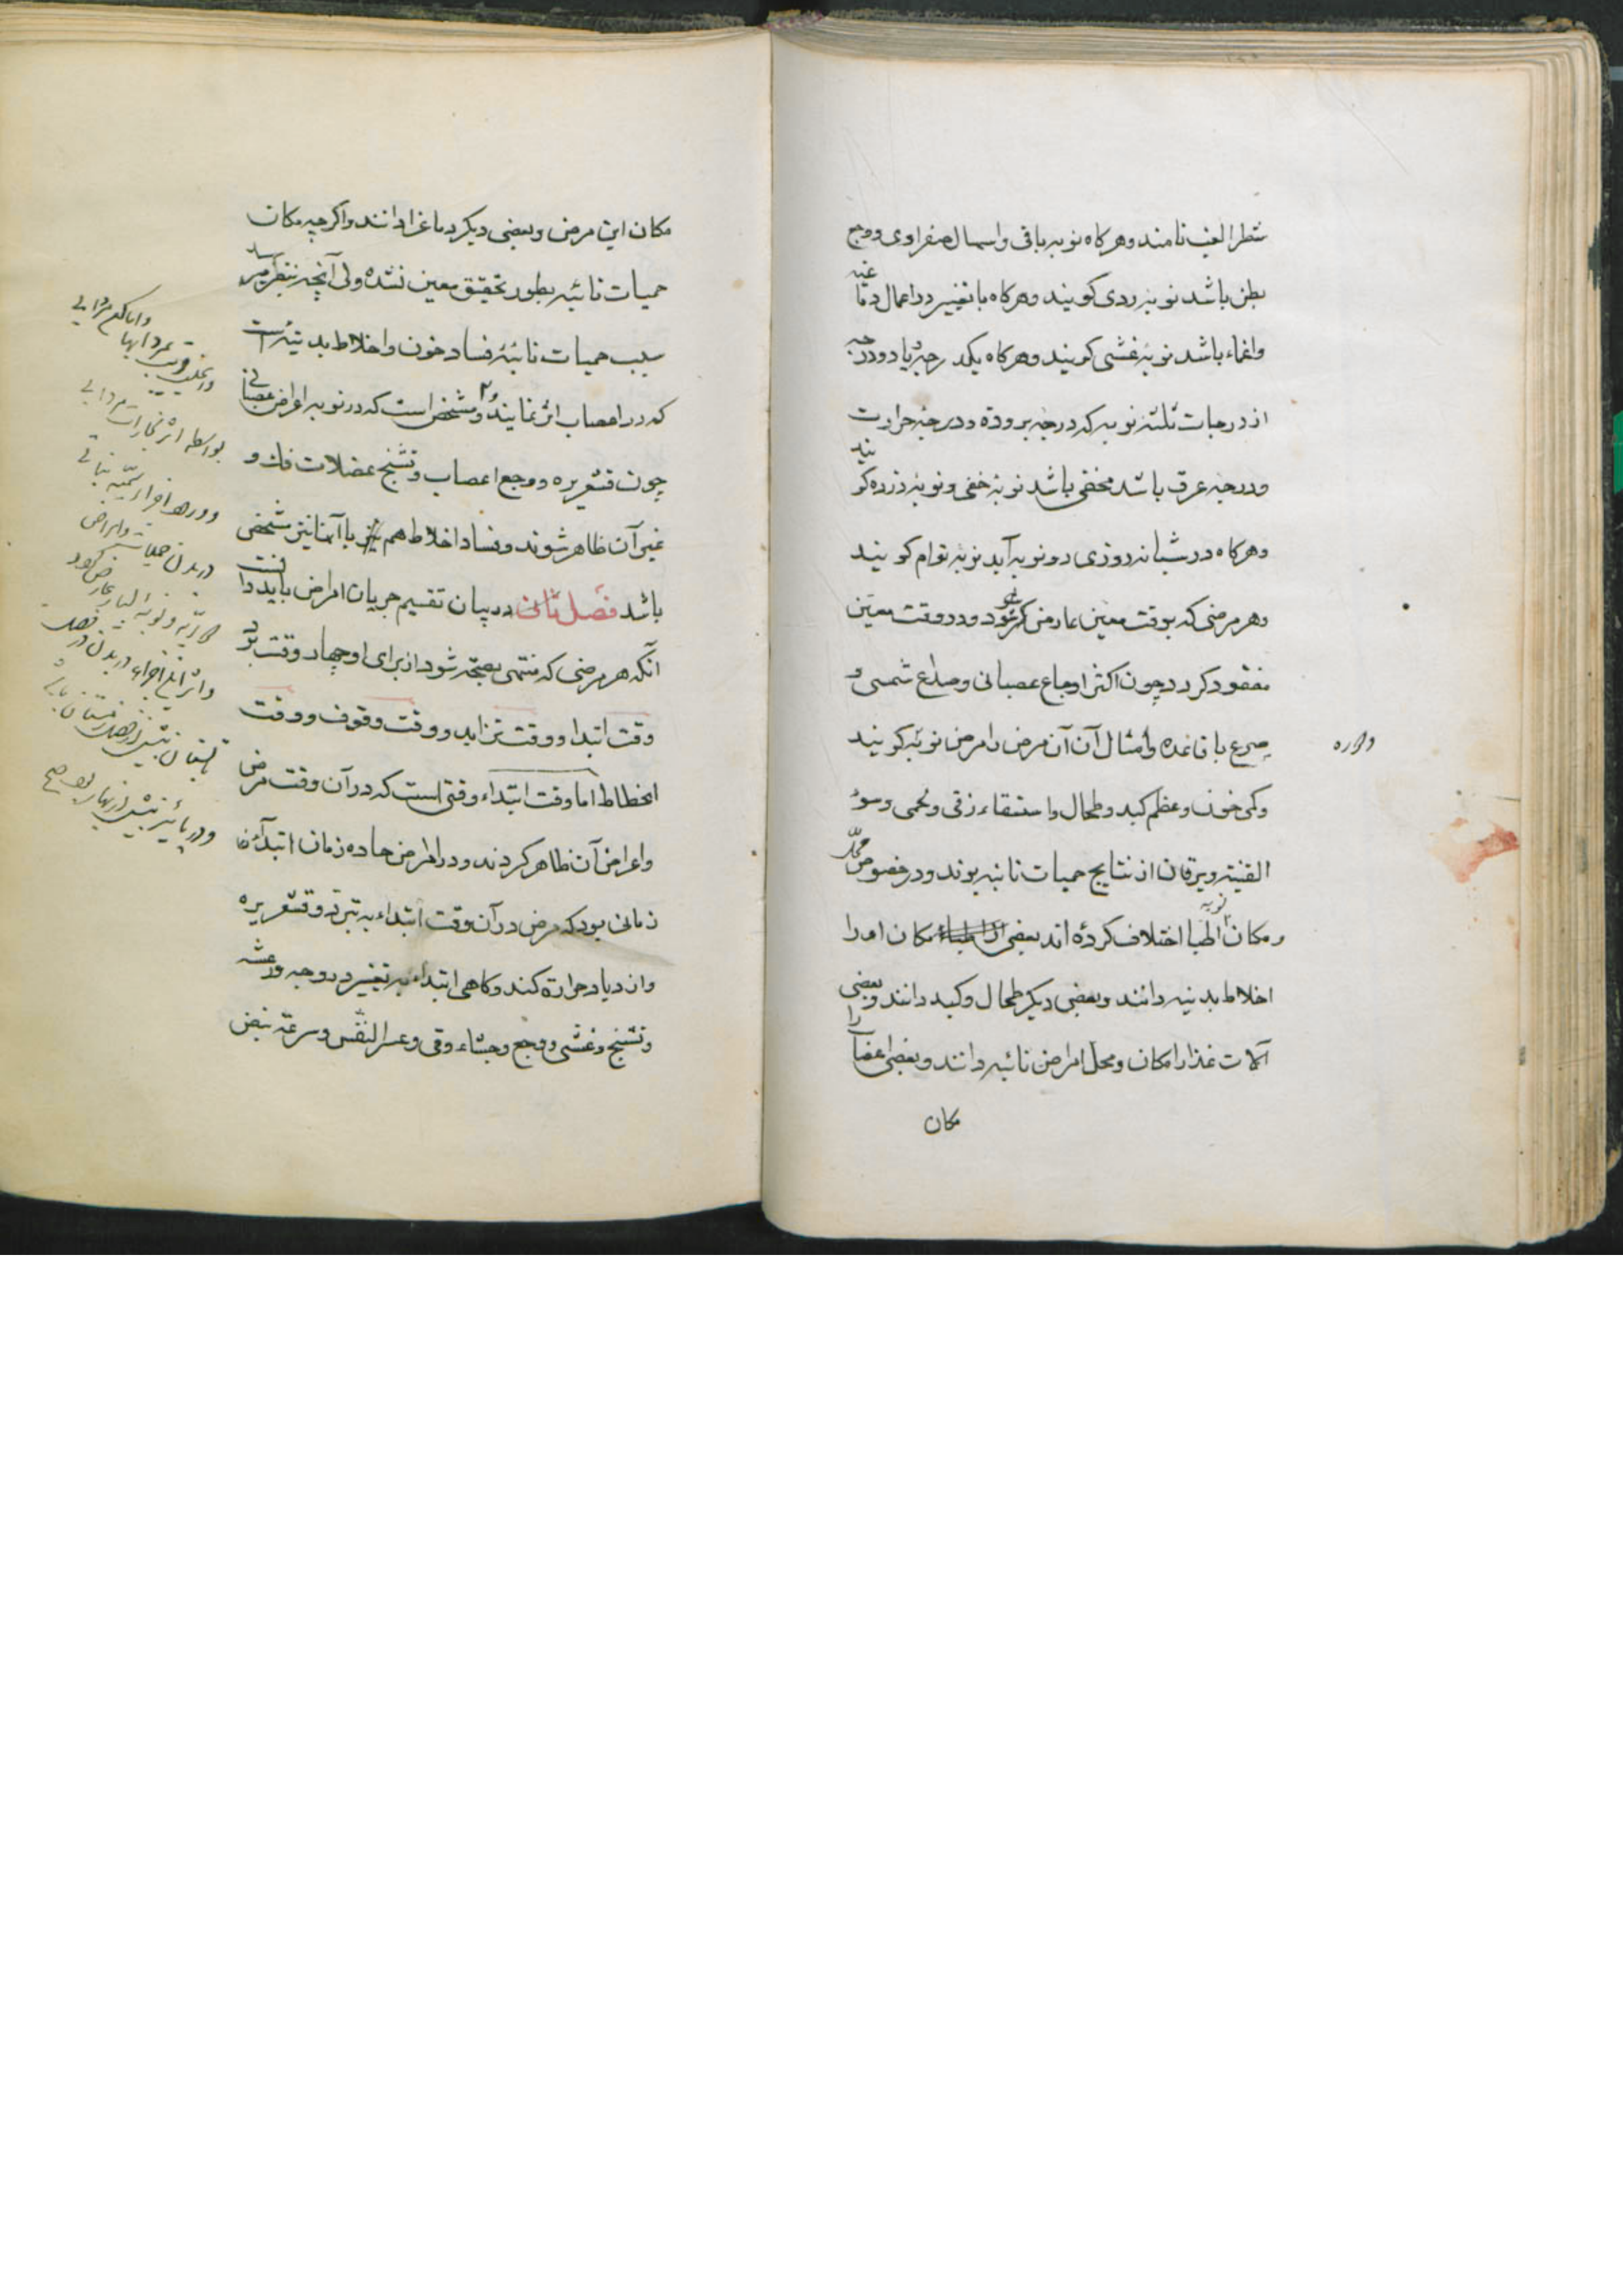 شطر الغب نامند و هرکاه نوبه باقی و اسهال صفراوی و وجع
بطن باشد نوبه ردی کویند و هرکاه با تغییر در اعمال دماغیه
و اغماء باشد نوبهٔ غشی کویند و هرکاه یکدرجه یا دو درجه
از درجات ثلثه نوبه که درجه برودة و درجه حرارت
و درجه عرق باشد مخفی باشد نوبهٔ خفی و نوبهٔ دزده کویند
و هرکاه در شبانه روزی دو نوبه آید نوبهٔ توام کویند
و هر مرضی که بوقت معین عارض شود و در وقت معین
مفقود کردد چون اکثر اوجاع عصبانی و صداع شمسی و
صرع با قاعده و امثال آن آن مرض را مرض نوبهٔ کویند
و کمی خون و عظم کبد و طحال و استسقاء زقی و لحمی و سوء
القنیه و یرقان از نتایج حمیات نائبه بوند و در خصوص محل
و مکان نوبه اطبا اختلاف کرده اند بعضی مکان او را
اخلاط بدنیه دانند و بعضی دیکر طحال و کبد دانند و بعضی
آلات غذا را مکان و محل امراض نائبه دانند و بعضی اعصاب را
مکان
مکان این مرض و بعضی دیکر دماغ را دانند و اکرچه مکان
حمیات نائبه بطور تحقیق معین نشده ولی آنچه بنظر میرسد
سبب حمیات نائبهٔ فساد خون و اخلاط بدنیهٔ است
که در اعصاب اثر نمایند و مشخص است که در نوبه اعراض عصبانی
چون قشعریره و وجع اعصاب و تشنج عضلات فك و
غیر آن ظاهر شوند و فساد اخلاط هم با آنها نیز مشخص
باشد فصل ثانی در بیان تقسیم جریان امراض باید دانست
آنکه هر مرضی که منتهی بصحة شود از برای او چهار وقت بود
وقت ابتدا و وقت تزاید و وقت وقوف و وقت
انحطاط اما وقت ابتداء وقتی است که در آن وقت مرض
و اعراض آن ظاهر کردند و در امراض حاده زمان ابتداء
زمانی بود که مرض در آن وقت ابتداء به تبرد و قشعریره
و ازدیاد حرارة کند و کاهی ابتداء به تغییر در وجه و رعشه
و تشنج و غشی و وجع و جشاء و قی و عسر النفس و سرعة نبض
بواسطه اثر بخارات مردابی
در بدن حمیات و امراض